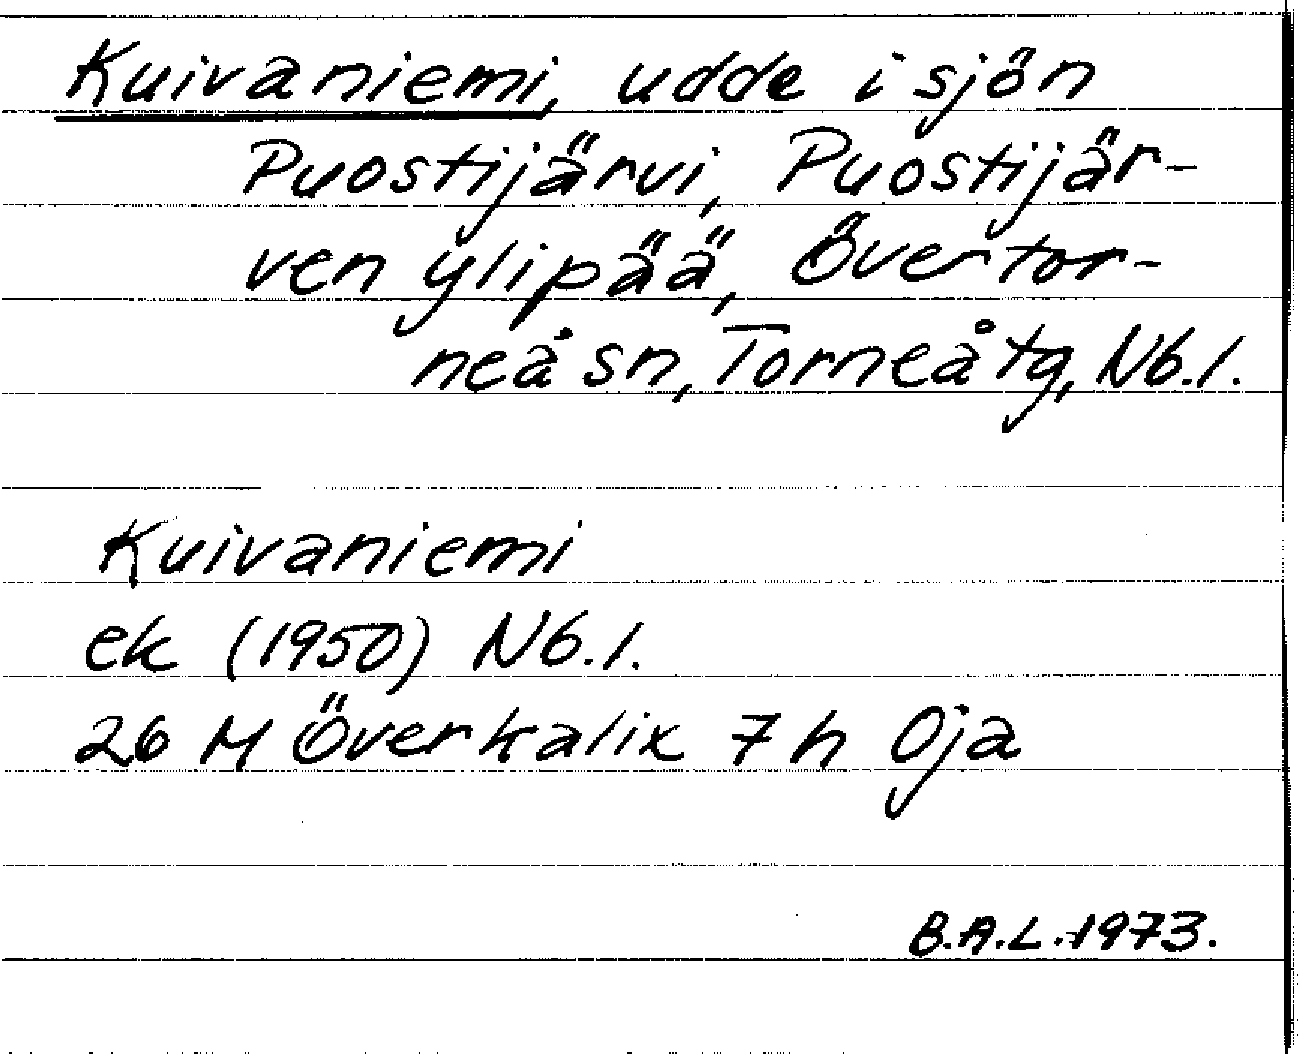 Kuivaniemi, udde i sjön
Puostijärvi, Puostijär-
ven ylipää, Övertor-
neå sn, Torneå tg, Nb.l.
Kuivaniemi
ek (1950) Nb.l.
26 M Överkalix 7 h Oja
B.A.L. 1973.